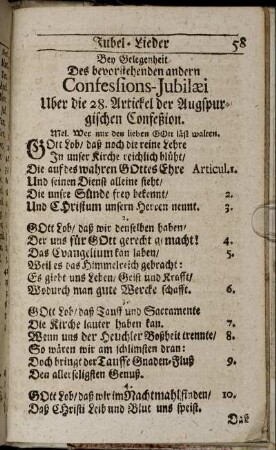 Jubel-Lieder 58
Bey Gelegenheit
Des bevorstehenden andern
Confessions-Jubilæi
Uber die 28. Artickel der Augspur-
gischen Confeßion.
Mel. Wer nur den lieben GOtt läst walten.
GOtt Lob/ daß noch die reine Lehre
In unser Kirche reichlich blüht/
Die auf des wahren GOttes Ehre Articul. 1.
Und seinen Dienst alleine sieht/
Die unsre Sünde frey bekennt/ 2.
Und Christum unsern Herren nennt. 3.
2.
GOtt Lob/ daß wir denselben haben/
Der uns für GOtt gerecht gemacht! 4.
Das Evangelium kan laben/ 5.
Weil es das Himmelreich gebracht:
Es giebt uns Leben/ Geist und Krafft/
Wodurch man gute Wercke schafft. 6.
3.
GOtt Lob/ daß Tauff und Sacramente
Die Kirche lauter haben kan. 7.
Wenn uns der Heuchler Boßheit trennte/ 8.
So wären wir am schlimsten dran:
Doch bringt der Tauffe Gnaden-Fluß 9.
Den allerseligsten Genuß.
4.
GOtt Lob/ daß wir im Nachtmahl finden/ 10.
Daß Christi Leib und Blut uns speist.
Daß